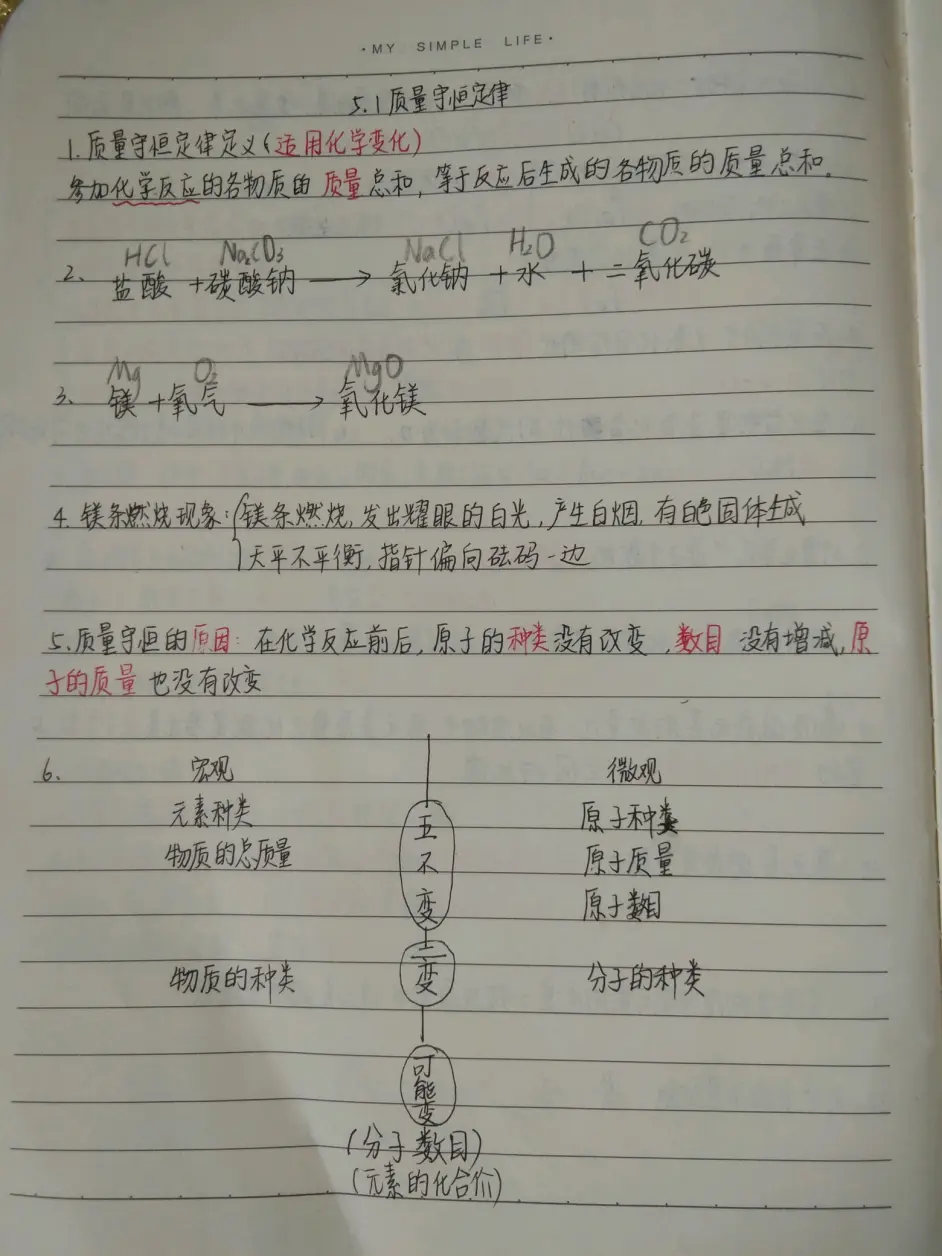 ·MY SIMPLE LIFE·
5.1质量守恒定律
1.质量守恒定律定义(适用化学变化)
参加化学反应的各物质的 质量总和,等于反应后生成的各物质的质量总和。
HCl Na₂CO₃ NaCl H₂O CO₂
2、盐酸 +碳酸钠 ⟶ 氯化钠 +水 + 二氧化碳
Mg O₂ MgO
3、镁 +氧气 ⟶ 氧化镁
4.镁条燃烧现象:{镁条燃烧,发出耀眼的白光,产生白烟,有白色固体生成
天平不平衡,指针偏向砝码一边
5.质量守恒的原因:在化学反应前后,原子的种类没有改变,数目 没有增减,原
子的质量 也没有改变
6. 宏观 微观
元素种类 五不变 原子种类
物质的总质量 原子质量
原子数目
物质的种类 二变 分子的种类
可能变
(分子数目)
(元素的化合价)